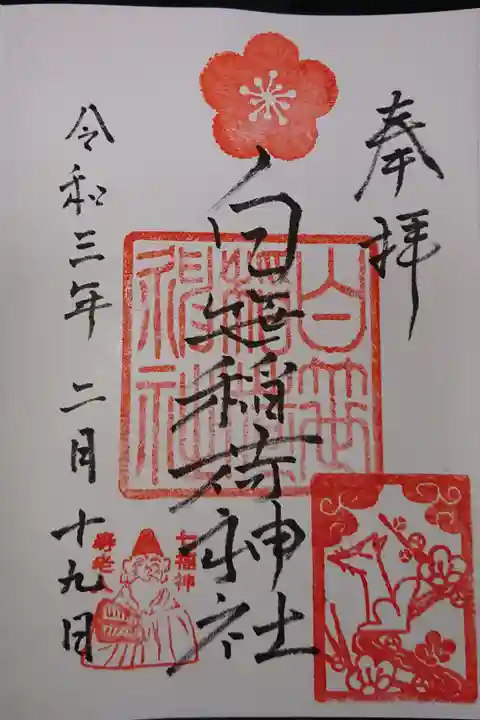 奉拝
白笹稲荷神社
白笹
稲荷
神社
令和三年 二月 十九日
七福神